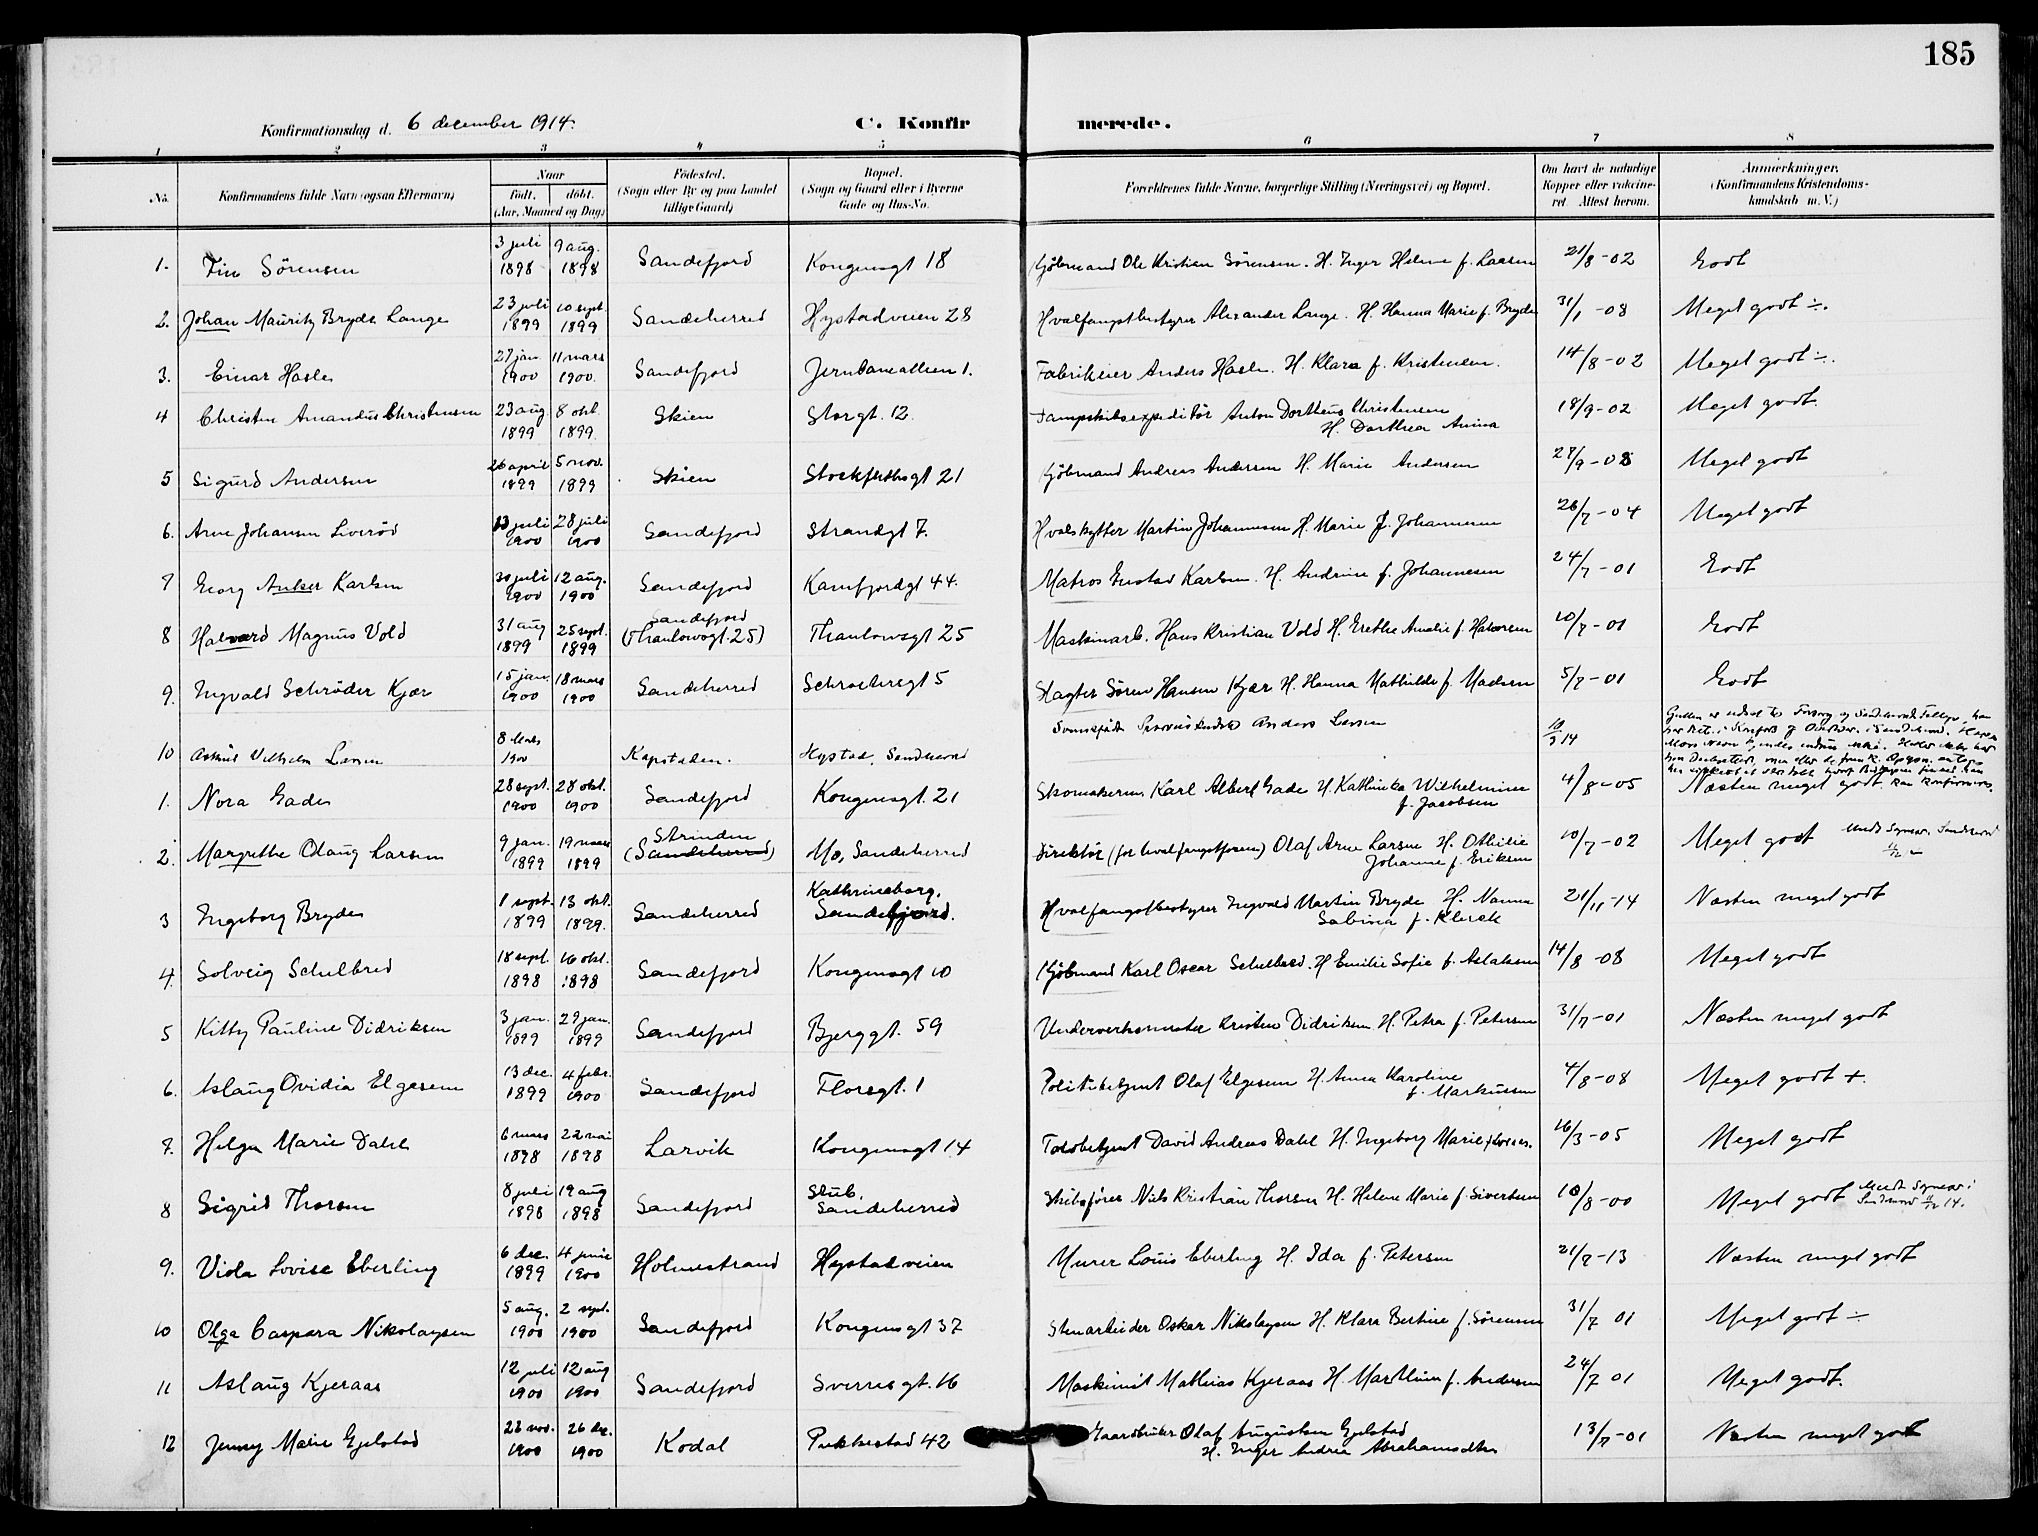 185
Konfirmationsdag d. 6 december 1914.
C. Konfirmerede.
1 2 3 4 5 6 7 8
No. Konfirmandens fulde Navn (ogsaa Efternavn) Naar født. døbt. (Aar, Maaned og Dag) Fødested. (Sogn eller By og paa Landet tillige Gaard) Bopæl. (Sogn og Gaard eller i Byerne Gade og Hus-No. Forældrenes fulde Navne, borgerlige Stilling (Næringsvei) og Bopæl. Om havt de naturlige Kopper eller vaccineret. Attest herom. Anmærkninger. (Konfirmandens Kristendomskundskab m. V.)
1. Fin Sörensen 3 juli 1898 9 aug. 1898 Sandefjord Kongensgt 18 Kjöbmand Ole Kristian Sörensen. H. Inger Helene f. Larsen 21/8-02 Godt
2. Johan Mauritz Bryde Lange 23 juli 1899 10 sept. 1899 Sandeherred Hystadveien 28 Hvalfangstbestyrer Alexander Lange. H. Hanna Marie f. Bryde 31/1-08 Meget godt ÷.
3. Einar Hasle 27 jan 1900 11 mars 1900. Sandefjord Jernbanealleen 1. Fabrikeier Anders Hasle. H. Klara f. Kristensen. 14/8-02 Meget godt ÷.
4 Christen Amandus Christensen 23 aug. 1899 8 okt. 1899. Skien Storgt. 12. Dampskibsexpeditör Anton Dortheus Christensen H. Dorthea Amina 18/9-02 Meget godt.
5 Sigurd Andersen 26 april 1899 5 nov. 1899 Skien Stockflethsgt 21 Kjöbmand Andreas Andersen H. Marie Andersen 27/9-03 Meget godt
6. Arne Johansen Liveröd 13 juli 1900 28 juli 1900 Sandefjord Strandgt 7. Hvalskytter Martin Johannesen H. Marie f. Johannesen 26/7-04 Meget godt
7 Georg Anker Karlsen 30 juli 1900 12 aug. 1900 Sandefjord Kamfjordgt 44. Matros Gustav Karlsen. H. Andrine f. Johannesen 24/7-01 Godt
8 Halvard Magnus Vold 31 aug 1899 25 sept. 1899 Sandefjord (Thaulowsgt. 25) Thaulowsgt 25 Maskinarb. Hans Kristian Vold H. Grethe Amalie f. Halvorsen 10/7-01 Godt
9. Ingvald Schröder Kjær 15 jan. 1900 18 mars 1900 Sandeherred Schroetersgt 5 Slagter Sören Hansen Kjær H. Hanna Mathilde f. Madsen 5/7-01 Godt
10 Vilhelm Larsen 8 1900 Kapstaden. Hystad, Sandherred Anders Larsen 10/3 14
1. Nora Gade 28 sept. 1900 28 okt. 1900 Sandefjord Kongensgt. 21 Skomakerm. Karl Albert Gade H. Kathinka Wilhelmine f. Jacobsen 4/8-05 Næsten meget godt
2. Margrethe Olaug Larsen 9 jan. 1899 19 mars 1899 Strinden (Sandeherred) Mo, Sandeherred Direktör (for hvalfangstforen) Olaf Arne Larsen H. Othilie Johanne f. Eriksen 10/7-02 Meget godt
3 Ingeborg Bryde 1 sept. 1899 13 okt. 1899. Sandeherred Kathrineborg. Sandefjord. Hvalfangstbestyrer Ingvald Martin Bryde H. Nanna Sabina f. Klerck 21/11-14 Næsten meget godt
4. Solveig Schelbred 18 sept. 1898 16 okt. 1898 Sandefjord Kongensgt 10 Kjöbmand Karl Oscar Schelbred. H Emilie Sofie f. Aslaksen 14/8-08 Meget godt
5 Kitty Pauline Didriksen 3 jan. 1899 29 jan. 1899 Sandefjord Bjerggt. 59 Underverksmester Kristen Didriksen. H. Petra f. Petersen 31/7-01 Næsten meget godt
6. Aslaug Ovidia Elgesem 13 dec. 1899 4 febr. 1900 Sandefjord Floresgt. 1 Politibetjent Olaf Elgesem H. Anna Karoline f. Markussen 4/8-08 Meget godt +.
7. Helga Marie Dahl 6 mars 1898 22 mai 1898 Larvik Kongensgt 14 Toldbetjent David Andreas Dahl H. Ingeborg Marie 16/3-05 Meget godt
8 Sigrid Thorsen 8 juli 1898 19 aug 1898 Sandefjord Stub, Sandeherred Skibsförer Nils Kristian Thorsen H. Helene Marie f. Sivertsen 18/8-00 Meget godt
9. Viola Lovise Eberling 6 dec. 1899 4 juni 1900 Holmestrand Hystadveien Murer Louis Eberling H. Ida f. Petersen 21/7-13 Næsten meget godt
10 Olga Caspara Nikolaysen 5 aug. 1900 2 sept. 1900 Sandefjord Kongensgt 37 Stenarbeider Oskar Nikolaysen H. Klara Bertine f. Sörensen 31/7 01 Meget godt ÷
11 Aslaug Kjeraas 12 juli 1900 12 aug 1900 Sandefjord Sverresgt. 16 Maskinist Mathias Kjeraas H. Marthine f. Andersen 24/7 01 Meget godt.
12 Jenny Marie Gjelstad 22 nov. 1900 26 de. 1900 Kodal Pukkestad 42 Gaardbruker Olaf Augustsen Gjelstad H. Inger Andrea Abrahamsdtr 13/7-01 Næsten meget godt